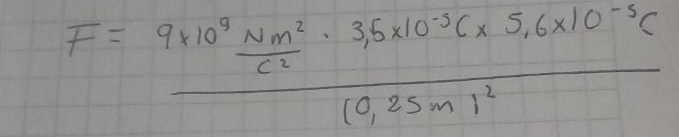 F = 9x10⁹ Nm²/C² · 3,5x10⁻⁵C x 5,6x10⁻⁵C
(0,25m)²